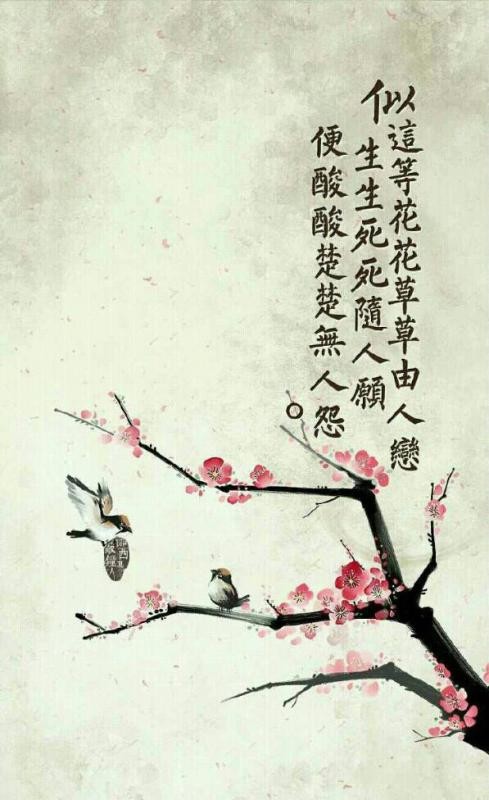 似這等花花草草由人戀
生生死死隨人願
便酸酸楚楚無人怨。